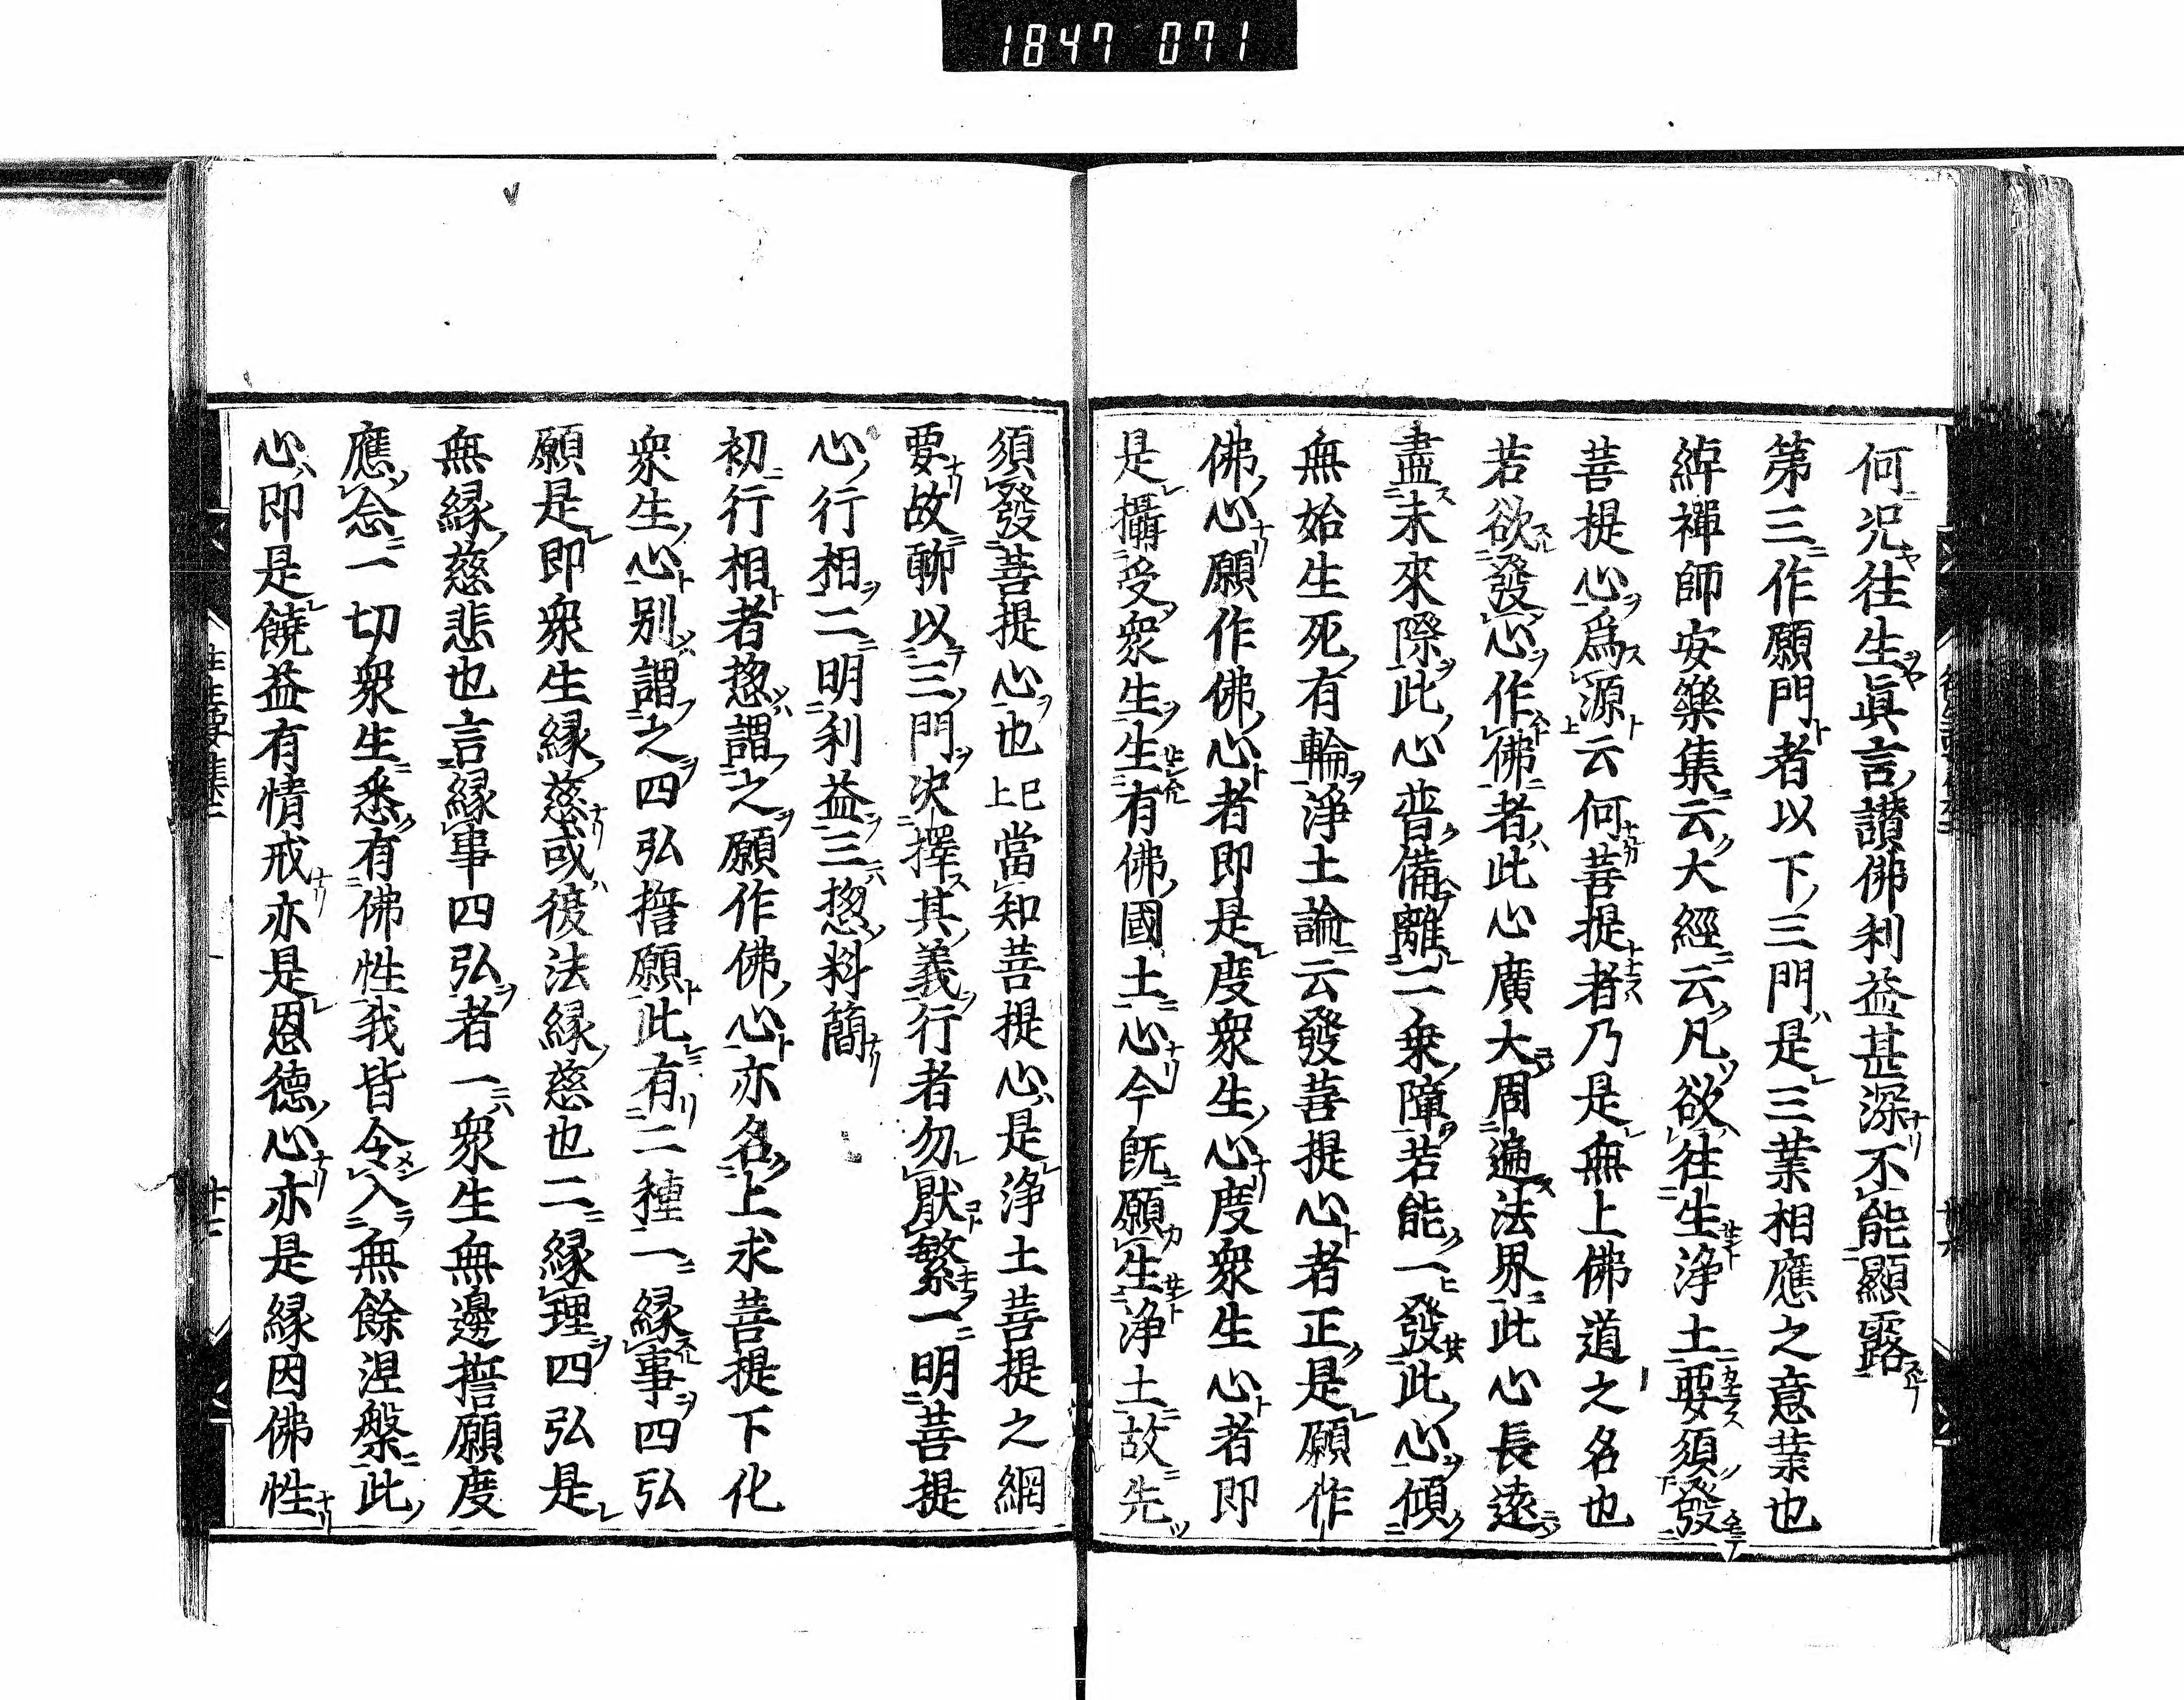 1847 071
何況往生眞言讃佛利益甚深不能顯露
第三作願門者以下三門是三業相應之意業也
綽禪師安樂集云大經云凡欲往生浄土要須發
菩提心爲源云何菩提者乃是無上佛道之名也
若欲發心作佛者此心廣大周遍法界此心長遠
盡未來際此心普備離二乗障若能一發此心傾
無始生死有輪淨土論云發菩提心者正是願作
佛心願作佛心者即是度衆生心度衆生心者即
是攝受衆生生有佛國土心今既願生浄土故先
須發菩提心也已上當知菩提心是浄土菩提之綱
要故聊以三門決擇其義行者勿厭繁一明菩提
心行相二明利益三惣料簡
初行相者惣謂之願作佛心亦名上求菩提下化
衆生心別謂之四弘誓願此有二種一縁事四弘
願是即衆生縁慈或復法縁慈也二縁理四弘是
無縁慈悲也言縁事四弘者一衆生無邊誓願度
應念一切衆生悉有佛性我皆令入無餘涅槃此
心即是饒益有情戒亦是恩德心亦是縁因佛性